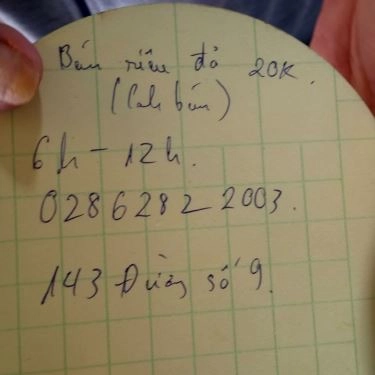 Bán riêu đỏ 20K.
(Canh bún)
6h - 12h.
02862822003.
143 Đường số 9.